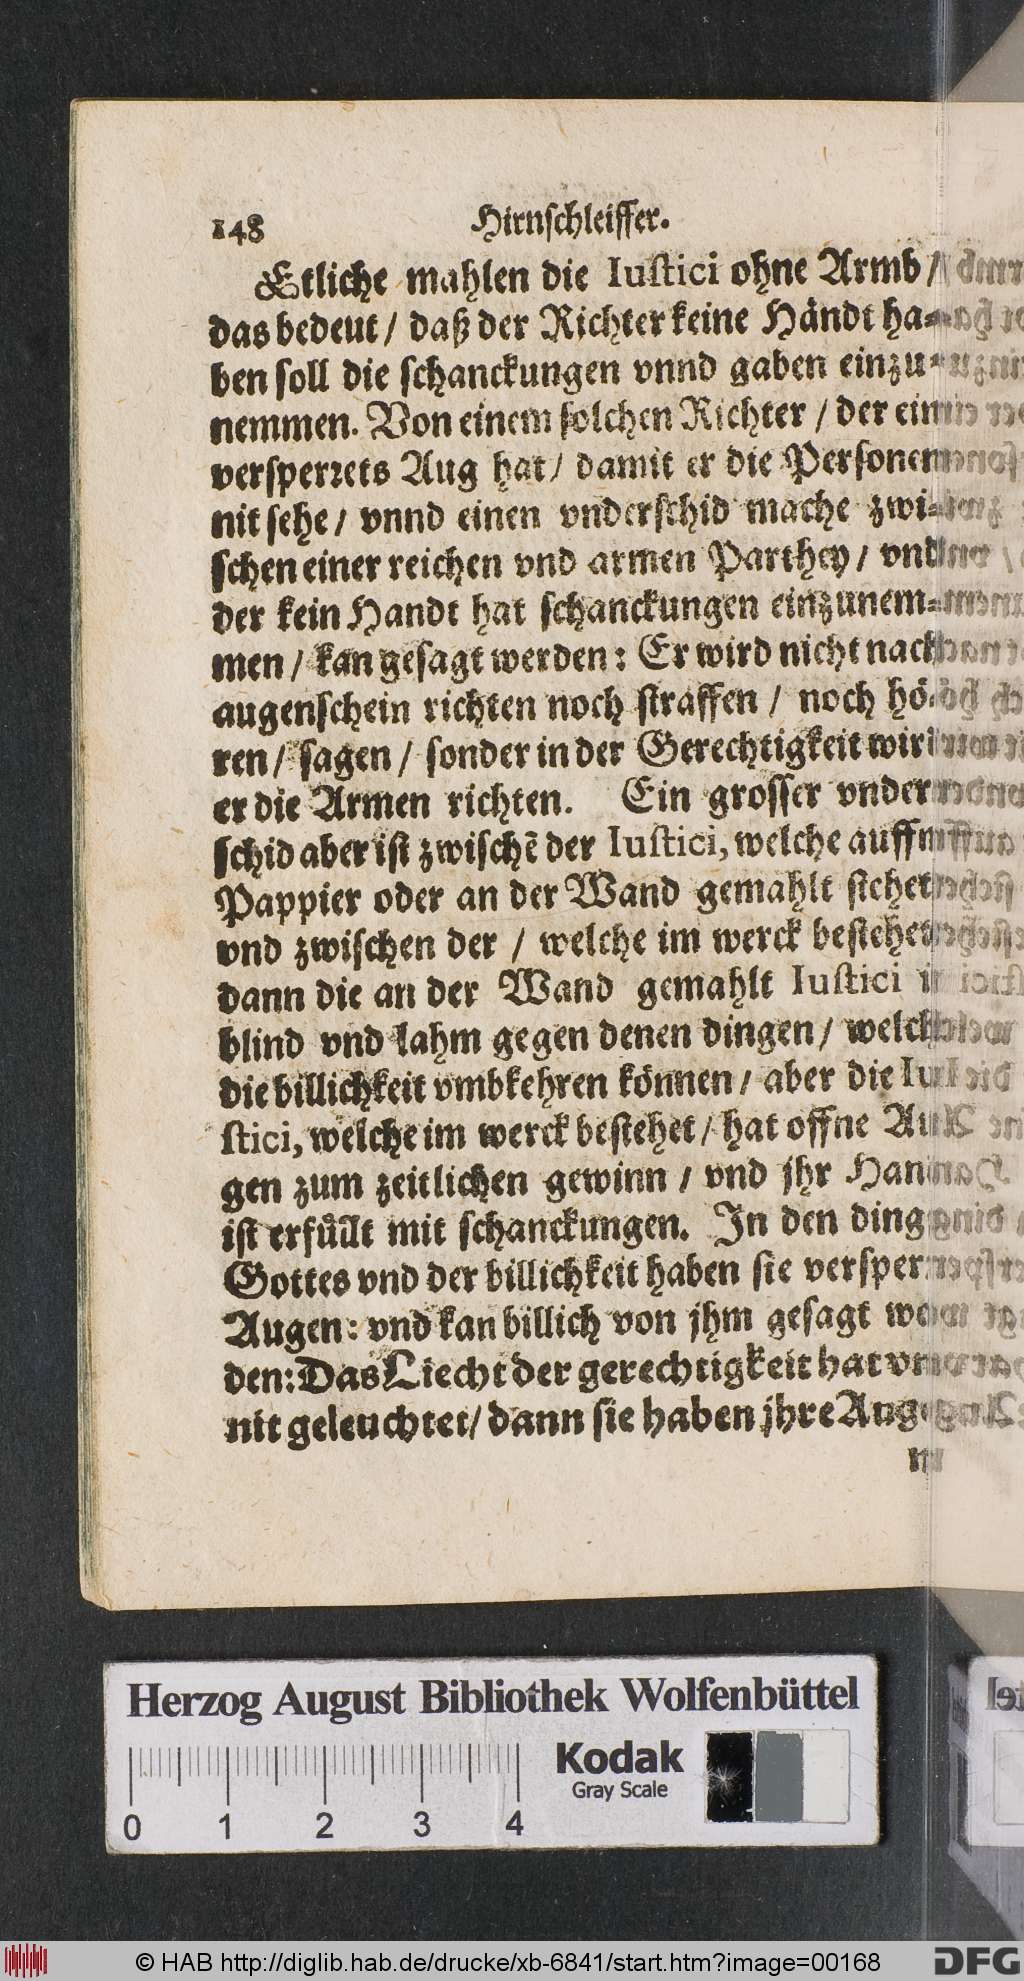 148 Hirnschleiffer.
Etliche mahlen die Iustici ohne Armb /
das bedeut / daß der Richter keine Händt ha-
ben soll die schanckungen vnnd gaben einzu-
nemmen. Von einem solchen Richter / der ein
versperrets Aug hat / damit er die Personen
nit sehe / vnnd einen vnderschid mache zwi-
schen einer reichen vnd armen Parthey / vnd
der kein Handt hat schanckungen einzunem-
men / kan gesagt werden: Er wird nicht nach
augenschein richten noch straffen / noch hö-
ren / sagen / sonder in der Gerechtigkeit wird
er die Armen richten. Ein grosser vnder
schid aber ist zwischē der Iustici, welche auff
Pappier oder an der Wand gemahlt stehet
vnd zwischen der / welche im werck bestehet
dann die an der Wand gemahlt Iustici i
blind vnd lahm gegen denen dingen / welch
die billichkeit vmbkehren können / aber die Iu
stici, welche im werck bestehet / hat offne Au
gen zum zeitlichen gewinn / vnd jhr Han
ist erfüllt mit schanckungen. In den ding
Gottes vnd der billichkeit haben sie versper
Augen: vnd kan billich von jhm gesagt we
den: Das Liecht der gerechtigkeit hat vn
nit geleuchtet / dann sie haben jhre Aug
Herzog August Bibliothek Wolfenbüttel
Kodak
Gray Scale
0 1 2 3 4
© HAB http://diglib.hab.de/drucke/xb-6841/start.htm?image=00168
DFG